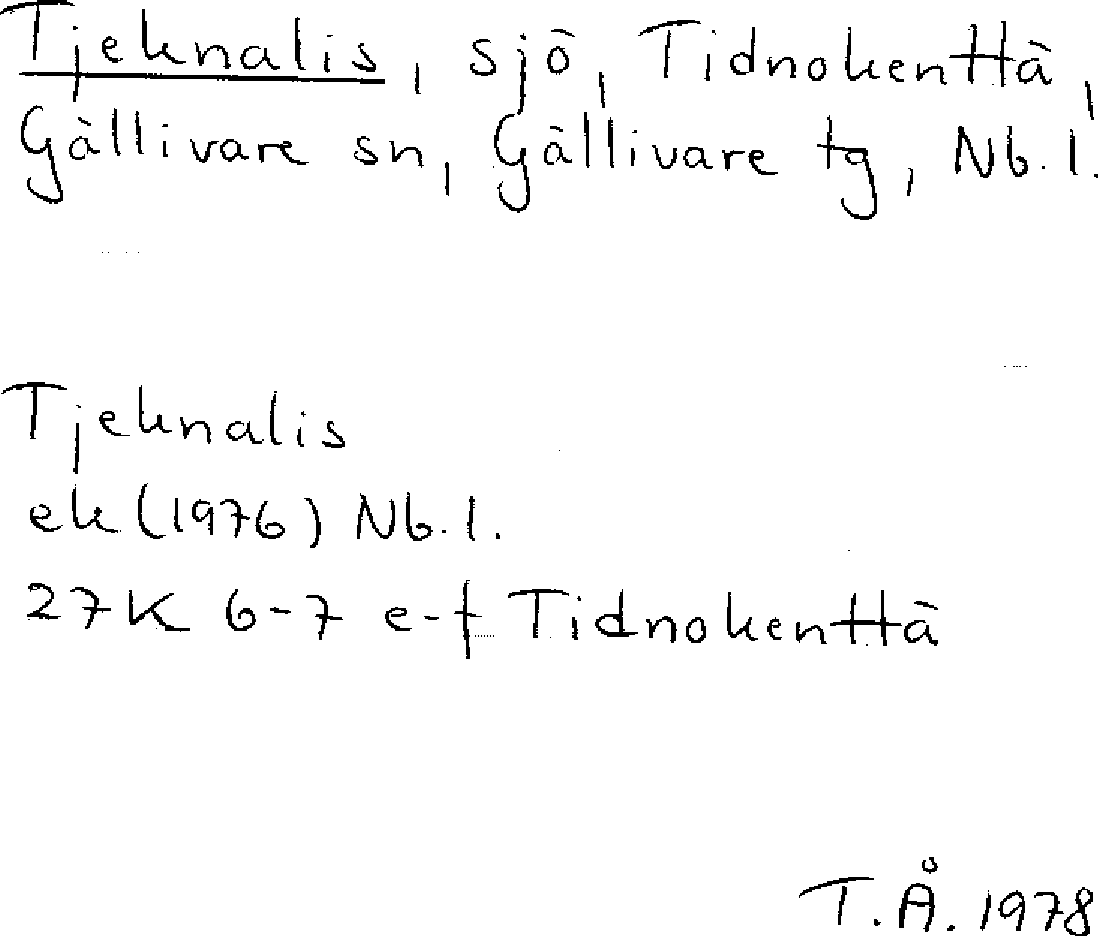 Tjeknalis, sjö, Tidnokenttä,
Gällivare sn, Gällivare tg, Nb.l.
Tjeknalis
ek (1976) Nb.l.
27K 6-7 e-f Tidnokenttä
T.Å. 1978